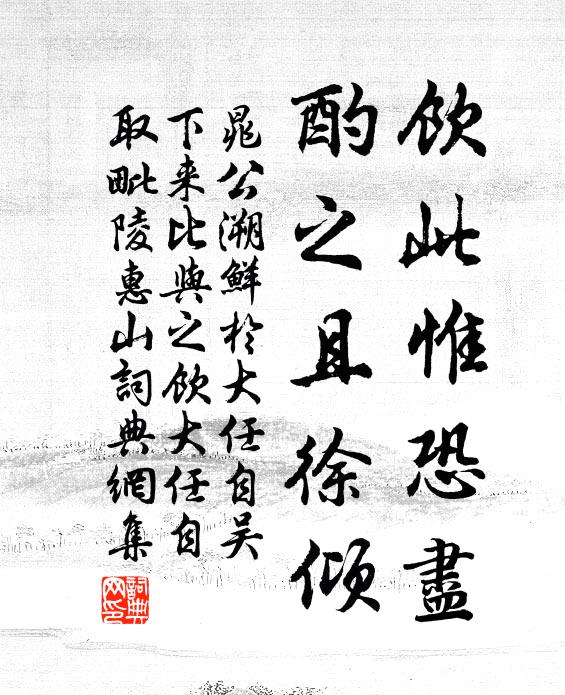 飲此惟恐盡
酌之且徐傾
晁公溯鮮於大任自吴
下来比與之飲大任自
取毗陵惠山詞典網集
詞典
网印